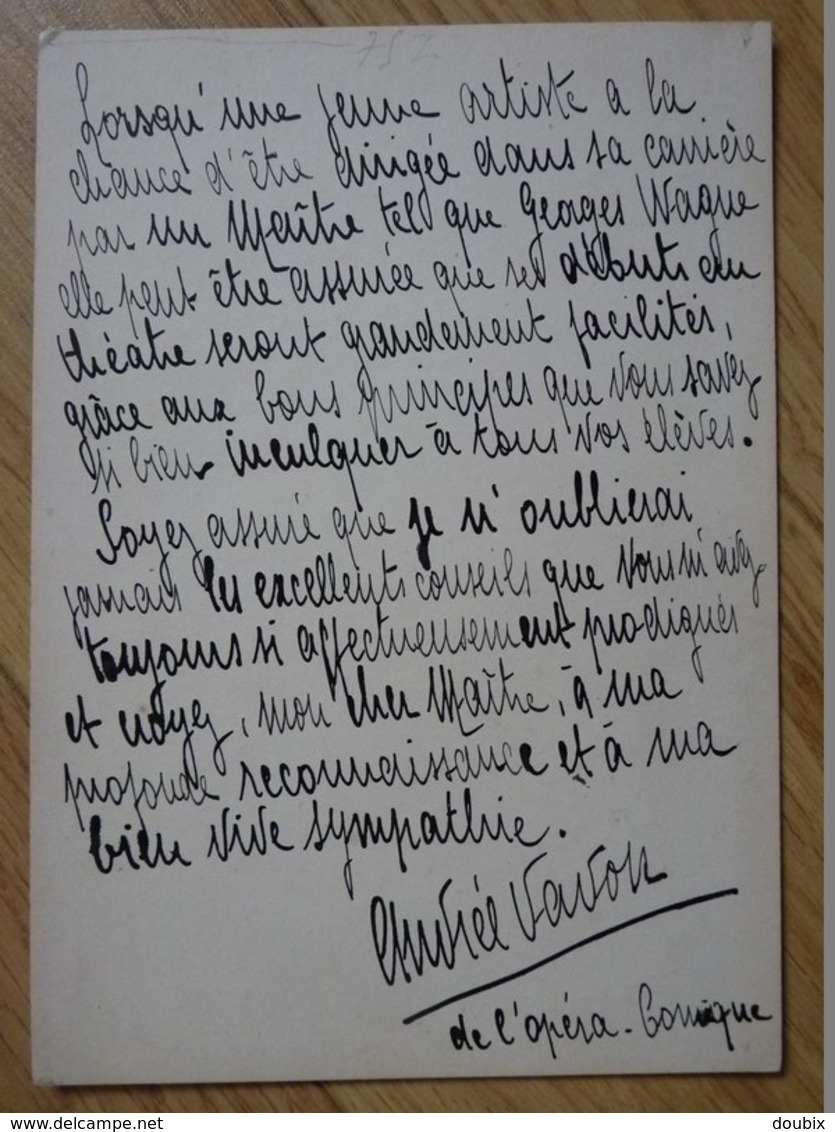 752
Lorsqu'une jeune artiste a la
chance d'être dirigée dans sa carrière
par un Maître tel que Georges Wague
elle peut être assurée que ses débuts au
théâtre seront grandement facilités,
grâce aux bons principes que vous savez
si bien inculquer à tous vos élèves.
Soyez assuré que je n'oublierai
jamais les excellents conseils que vous m'avez
toujours si affectueusement prodigués
et croyez, mon cher Maître, à ma
profonde reconnaissance et à ma
bien vive sympathie.
Andrée Vavon
de l'opéra-Comique
delcampe.net
doubix